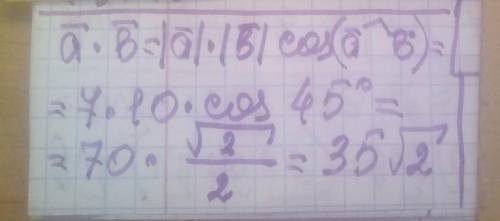 ā · b̄ = |ā| · |b̄| cos(ā ^ b̄) =
= 7 · 10 · cos 45° =
= 70 · √2/2 = 35√2